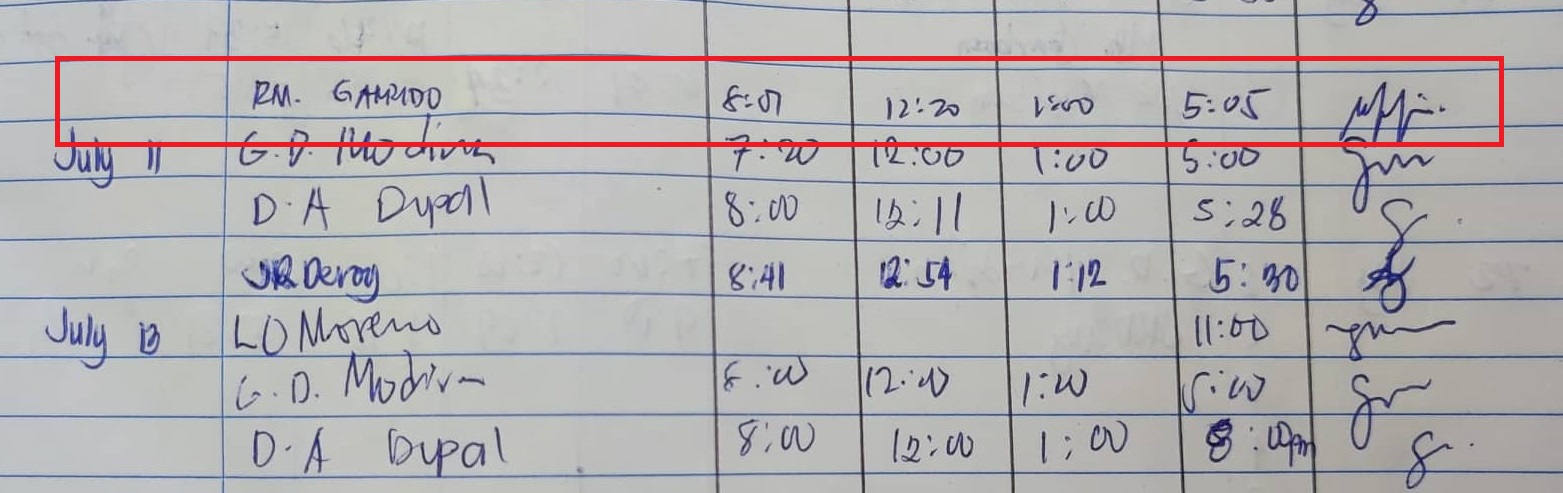 RM. GARRIDO 8:01 12:20 1:00 5:05
July 11 G.D. Modina 7:20 12:00 1:00 5:00
D.A Dupal 8:00 12:11 1:00 5:28
JR Deroy 8:41 12:54 1:12 5:30
July 13 LO Moreno 11:00
G.D. Modina 8:00 12:00 1:00 5:00
D.A Dupal 8:00 12:00 1:00 8:00pm